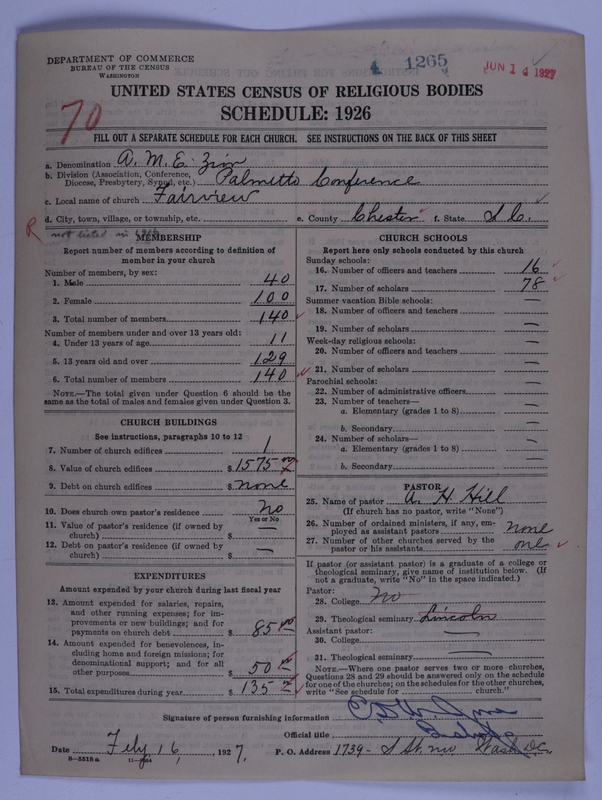 DEPARTMENT OF COMMERCE
BUREAU OF THE CENSUS
WASHINGTON
4 1265
JUN 14 1927
UNITED STATES CENSUS OF RELIGIOUS BODIES
SCHEDULE: 1926
70
FILL OUT A SEPARATE SCHEDULE FOR EACH CHURCH. SEE INSTRUCTIONS ON THE BACK OF THIS SHEET
a. Denomination A. M. E. Zion
b. Division (Association, Conference, Diocese, Presbytery, Synod, etc.) Palmetto Conference
c. Local name of church Fairview
d. City, town, village, or township, etc.
e. County Chester f. State S.C.
R not listed in
MEMBERSHIP
Report number of members according to definition of
member in your church
Number of members, by sex:
1. Male 40
2. Female 100
3. Total number of members 140
Number of members under and over 13 years old:
4. Under 13 years of age 11
5. 13 years old and over 129
6. Total number of members 140
NOTE.—The total given under Question 6 should be
same as the total of males and females given under Question 3.
CHURCH BUILDINGS
See instructions, paragraphs 10 to 12
7. Number of church edifices 1
8. Value of church edifices $1575 00
9. Debt on church edifices $none
10. Does church own pastor's residence No
Yes or No
11. Value of pastor's residence (if owned by
church) $ —
12. Debt on pastor's residence (if owned by
church) $ —
EXPENDITURES
Amount expended by your church during last fiscal year
13. Amount expended for salaries, repairs,
and other running expenses; for im-
provements or new buildings; and for
payments on church debt $ 85 00
14. Amount expended for benevolences, in-
cluding home and foreign missions; for
denominational support; and for all
other purposes $ 50 00
15. Total expenditures during year $ 135 00
CHURCH SCHOOLS
Report here only schools conducted by this church
Sunday schools:
16. Number of officers and teachers 16
17. Number of scholars 78
Summer vacation Bible schools:
18. Number of officers and teachers —
19. Number of scholars —
Week-day religious schools:
20. Number of officers and teachers —
21. Number of scholars —
Parochial schools:
22. Number of administrative officers —
23. Number of teachers—
a. Elementary (grades 1 to 8) —
b. Secondary —
24. Number of scholars—
a. Elementary (grades 1 to 8) —
b. Secondary —
PASTOR
25. Name of pastor A. H. Hill
(If church has no pastor, write "None")
26. Number of ordained ministers, if any, em-
ployed as assistant pastors none
27. Number of other churches served by the
pastor or his assistants one
If pastor (or assistant pastor) is a graduate of a college or
theological seminary, give name of institution below. (If
not a graduate, write "No" in the space indicated.)
Pastor:
28. College No
29. Theological seminary Lincoln
Assistant pastor:
30. College —
31. Theological seminary —
NOTE.—Where one pastor serves two or more churches,
Questions 28 and 29 should be answered only on the schedule
for one of the churches; on the schedules for the other churches,
write "See schedule for church."
Signature of person furnishing information
Official title Bishop
Date Feby 16, 1927. P. O. Address 1739- S St. NW Wash. D.C.
8—5518 a